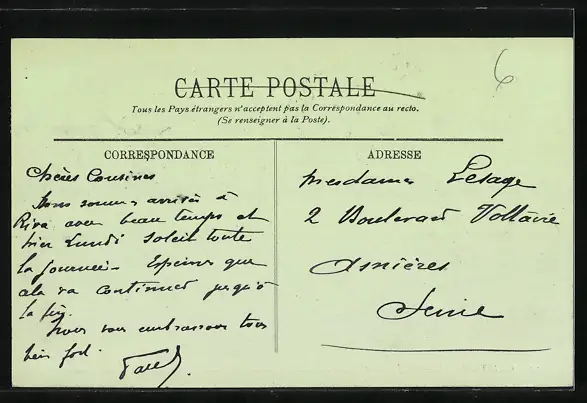 6
CARTE POSTALE
Tous les Pays étrangers n'acceptent pas la Correspondance au recto.
(Se renseigner à la Poste).
CORRESPONDANCE
ADRESSE
Chères Cousines
Nous sommes arrivés à
Riva avec beau temps et
hier Lundi soleil toute
la journée. Espérons que
cela va continuer jusqu'à
la fin.
Nous vous embrassons tous
bien fort.
Mesdames Lesage
2 Boulevard Voltaire
Asnières
Seine